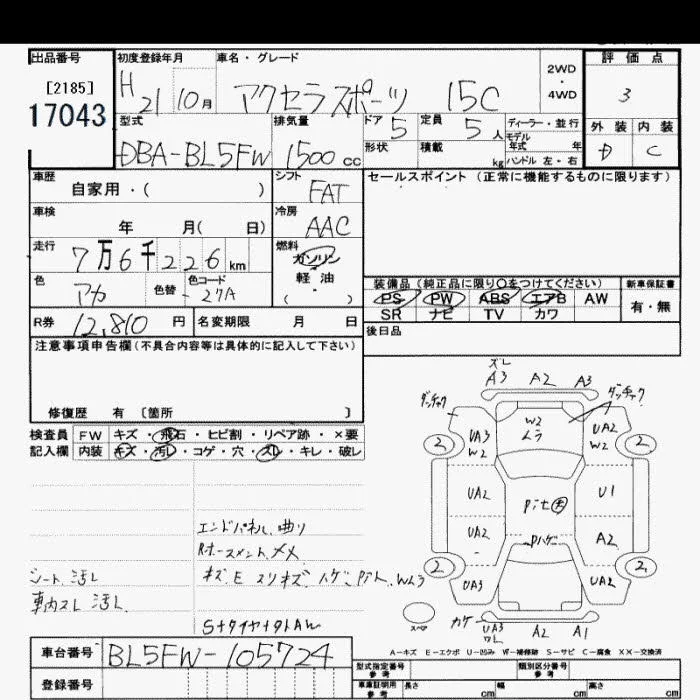 出品番号
[2185]
17043
初度登録年月
H21 10月
車名・グレード
アクセラスポーツ 15C
2WD
・
4WD
評価点
3
外装 内装
D C
型式
DBA-BL5FW
排気量
1500cc
ドア 5
定員 5人
ディーラー・並行
モデル
年式 年
形状
積載 kg
ハンドル 左・右
車歴
自家用・( )
シフト
FAT
セールスポイント (正常に機能するものに限ります)
車検
年 月( 日)
冷房
AAC
走行
7万6千226km
燃料
ガソリン
軽油
( )
色
アカ
色替
色コード
27A
装備品(純正品に限り○をつけてください)
PS PW ABS エアB AW
SR ナビ TV カワ
新車保証書
有・無
R券 12,810円
名変期限 月 日
後日品
注意事項申告欄(不具合内容等は具体的に記入して下さい)
修復歴 有 〔箇所 〕
検査員 FW キズ・飛石・ヒビ割・リペア跡・×要
記入欄 内装 キズ・汚レ・コゲ・穴・スレ・キレ・破レ
エンドパネル 曲り
シート 汚レ
車内スレ 汚レ
ズレ
A3 A2 A3
W2
UA3
W2
UA2
W2
2 2
UA2 U1
UA2 A2
Pハゲ
2 2
UA3 UA2
スペア
UA3 A2 A1
A-キズ E-エクボ U-凹み W-補修跡 S-サビ C-腐食 XX-交換済
車台番号 BL5FW-105724
登録番号
型式指定番号
参考
類別区分番号
参考
車庫証明用
参考
長さ cm 幅 cm 高さ cm